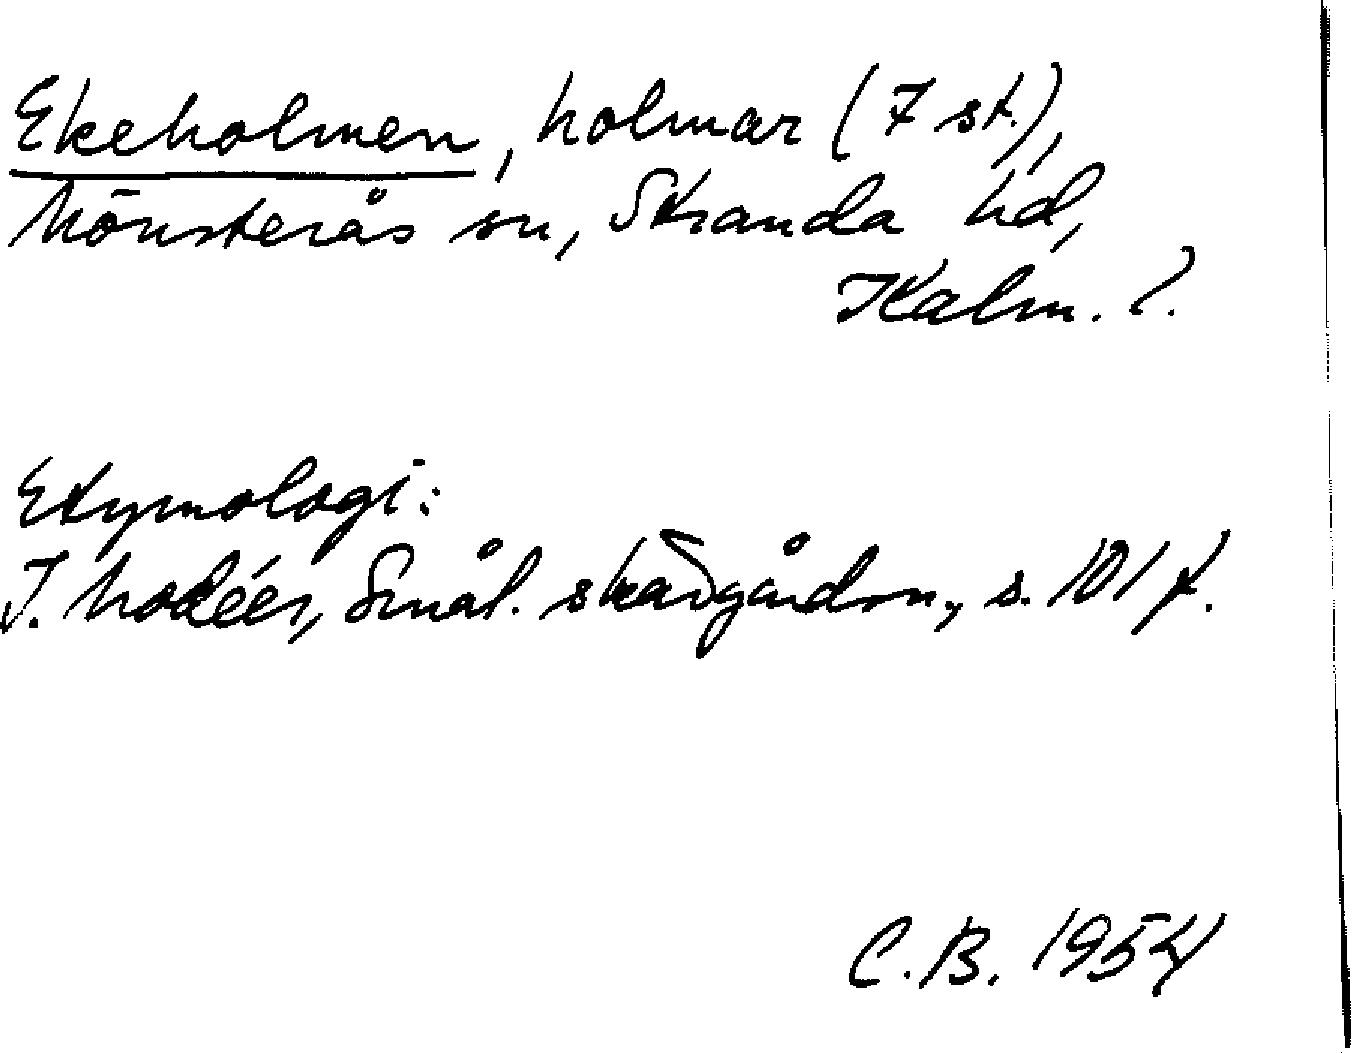 Ekeholmen, holmar (7 st.),
Mönsterås sn, Stranda hd,
Kalm. l.
Etymologi:
I. Modéer, Smål. skärgårdsn., s. 101 f.
C.B. 1954